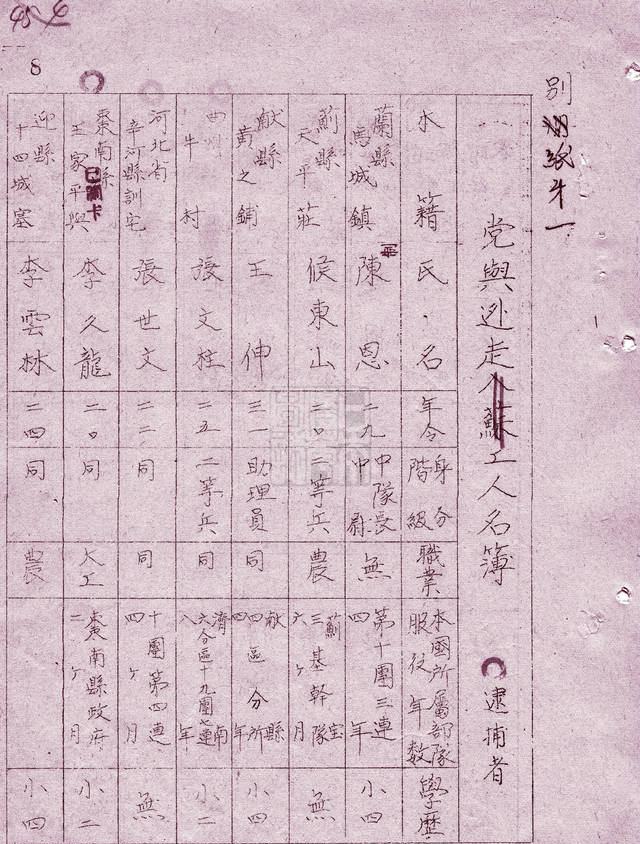 45
8
別紙才一
党與逃走入蘇工人名簿
逮捕者
本籍 氏・名 年令 身分階級 職業 本國所屬部隊服役年数 學歷
蘭縣馬城鎮 陳恩 二九 中隊長中尉 無 第十團三連四年 小四
薊縣天平莊 候東山 二〇 二等兵 農 薊三基幹隊六ヶ月 無
献縣黄之鋪 王伸 三一 助理員 同 献縣四區分所四年 小四
牛村 張文柱 二五 二等兵 同 濟南六分區十九團七連八年 小二
河北省辛河縣訓宅 張世文 二二 同 同 十團第四連四ヶ月 無
棗南縣王家平與 李久龍 二〇 同 大工 棗南縣政府二ヶ月 小二
迎縣十四城寨 李雲林 二四 同 農 小四